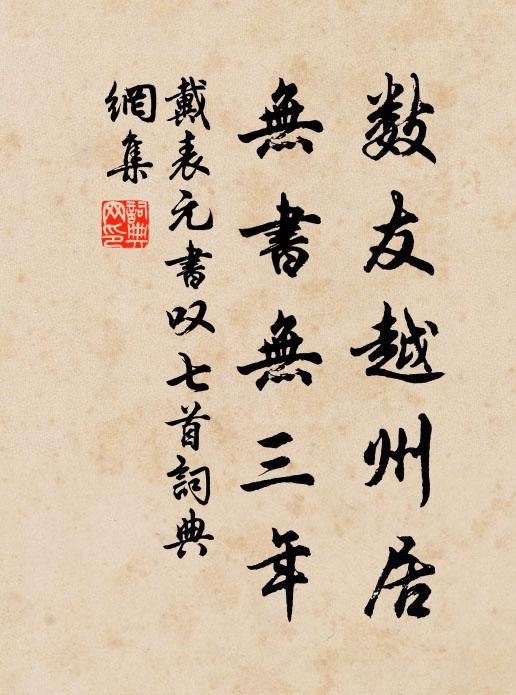 数友越州居
無書無三年
戴表元書叹七首詞典
網集
詞典
网印